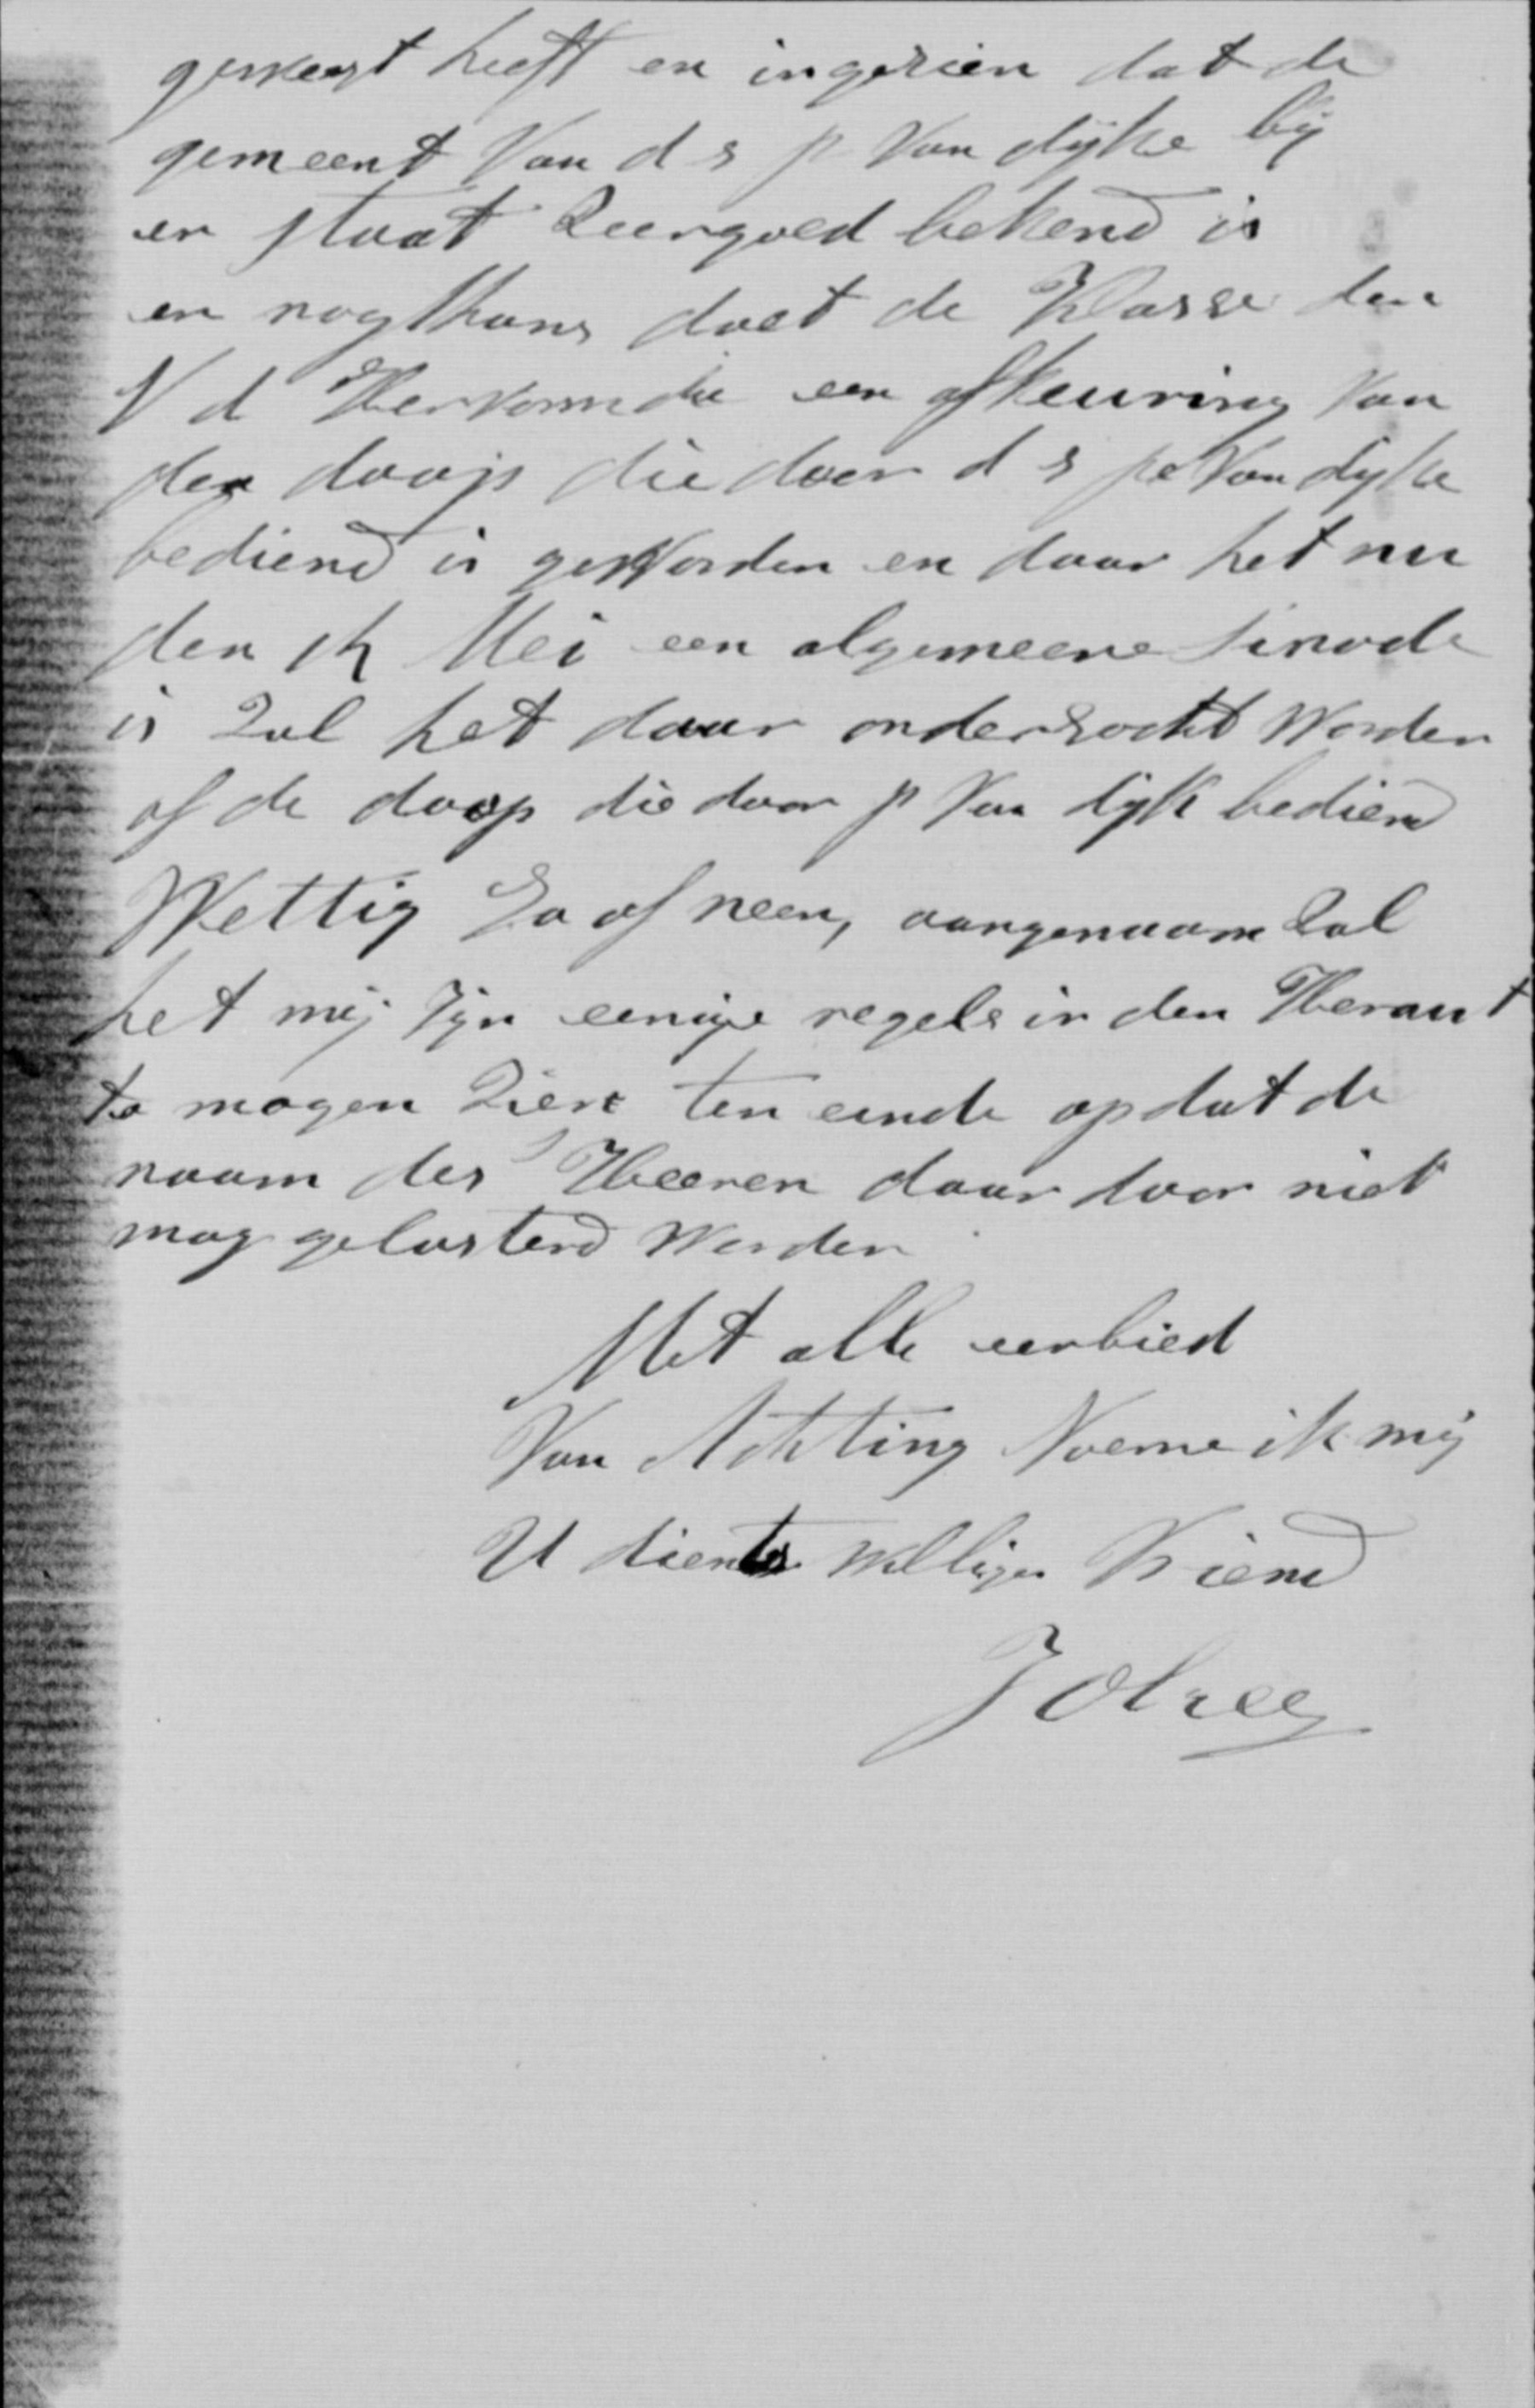 geweest heeft en ingezien dat de
gemeent Van d s p Van dijke bij
er staat Zeergoed bekend is
en nogthans doet de Klasse den
N d Hervormde een afkeuring Van
den doop die door d s pe Van dijke
bediend is geworden en daar het nu
den Mei een algemeene Sinode
is Zal het daar onderzocht Worden
of de doop die door p Van dijk bediend
Wettig Ja of neen, aangenaam Zal
het mij Zijn eenige regels in den Heraut
te mogen Zien ten einde opdat de
naam des Heeren daar door niet
mag gelasterd Worden
Met alle eerbied
Van Achting Noeme ik mij
U dienst Willige Vriend